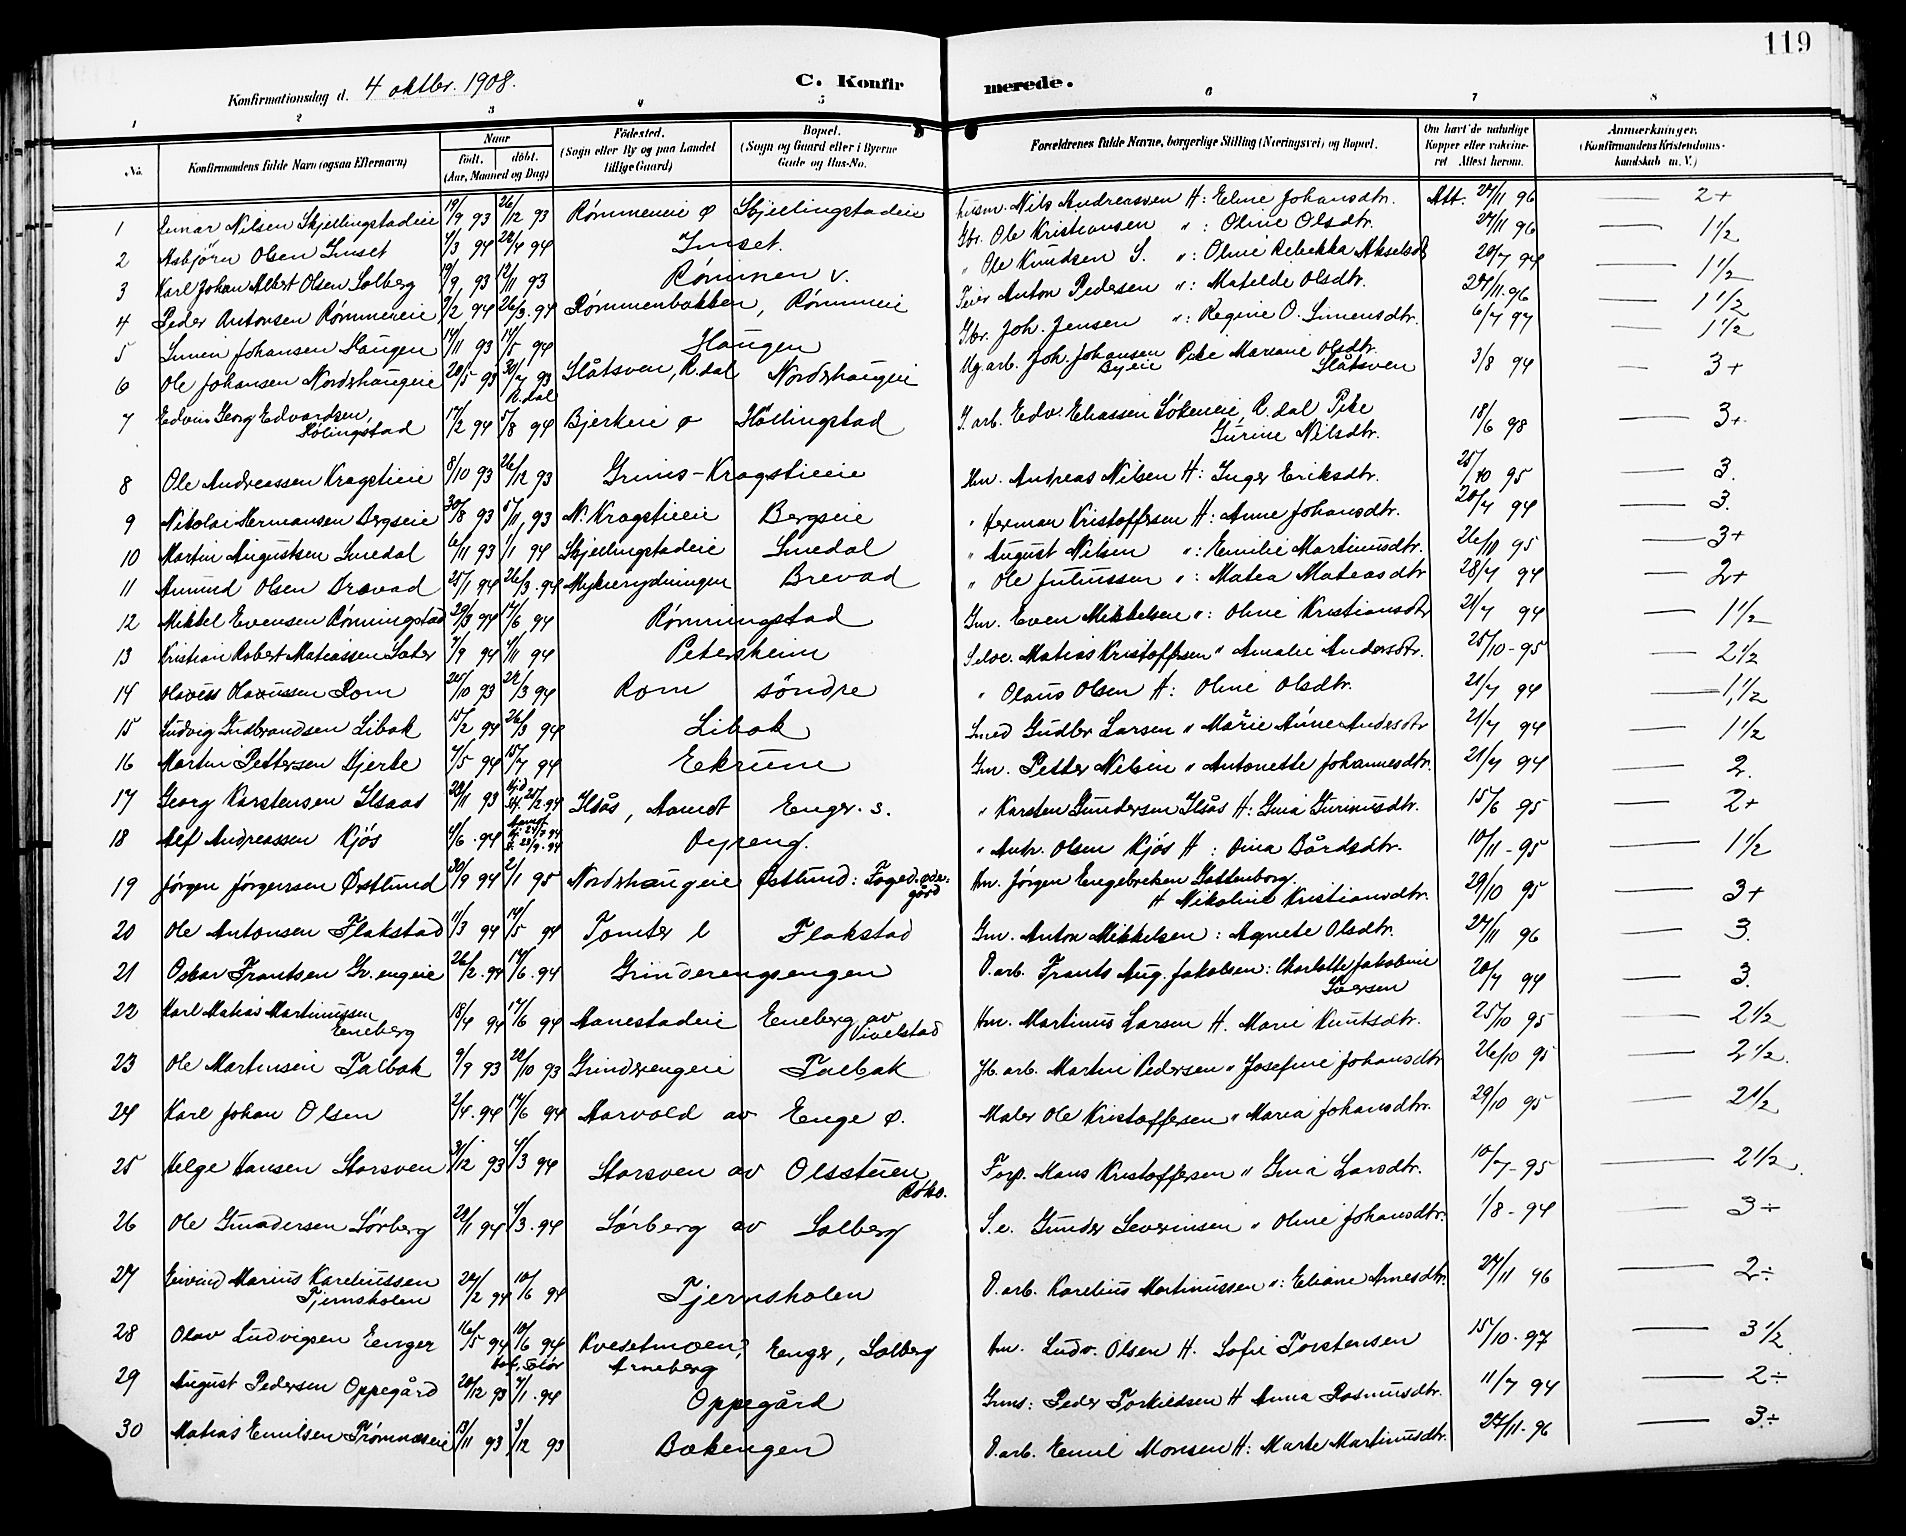 119
Konfirmationsdag d. 4 oktbr. 1908. C. Konfirmerede.
1 2 3 4 5 6 7 8
No. Konfirmandens fulde Navn (ogsaa Efternavn) Naar født. døbt. (Aar, Maaned og Dag) Fødested. (Sogn eller By og paa Landet tillige Gaard) Bopæl. (Sogn og Gaard eller i Byerne Gade og Hus-No. Forældrenes fulde Navne, borgerlige Stilling (Næringsvei) og Bopæl. Om havt de naturlige Kopper eller vaccineret Attest herom. Anmærkninger. (Konfirmandens Kristendomskundskab m. V.)
1 Einar Nilsen Skjellingstadeie 19/9 93 26/12 93 Rømmeneie ø Skjellingstadeie husm. Nils Andreassen H: Eline Johansdtr. Att. 27/11 96 2+
2 Asbjörn Olsen Imset 4/3 94 22/4 94 Imset. Gbr. Ole Kristiansen ": Oline Olsdtr. 27/11 96 1½
3 Karl Johan Albert Olsen Solberg 19/9, 93 12/11 93 Rømmen v. " Ole Knudsen S. ": Oline Rebekka Akselsd 20/7 94 1½
4 Peder Antonsen Rømmeneie 2/2 94 26/3.94 Rømmenbakken, Rømmeie Feier Anton Pedersen ": Matelde Olsdtr. 27/11.96 1½
5 Simen Johansen Haugen 14/11 93 14/5 94 Haugen Gbr. Joh. Jensen ": Regine O. Simensdtr. 6/7 97 1½
6 Ole Johansen Nordshaugeie 20/5 93 30/7 93 R.dal Slåtsven, R.dal Nordshaugeie Ug. arb. Joh. Johansen Byeie Pike Mariane Olsdtr. Slåtsven 3/8 94 3+
7 Edvin Georg Edvardsen Hölingstad 17/2 94 5/8 94 Bjerkeie ø Höllingstad G. arb. Edv. Eliassen Løkeneie, R.dal Pike Gurine Nilsdtr. 18/6 98 3+
8 Ole Andreassen Kragstieie 8/10 93 26/12 93 Grinis-Kragstieeie Hm. Andreas Nilsen H: Inger Eriksdtr. 25/10 95 3.
9 Nikolai Hermansen Bergseie 30/8 93 5/11, 93 N. Kragstieeie Bergseie " Herman Kristoffersen H: Anne Johansdtr. 20/7 94 3.
10 Martin Augustsen Smedal 6/11 93 1/1 94 Skjellingstadeie Smedal " August Nilsen ": Emilie Martinusdtr. 26/11 95 3+
11 Amund Olsen Brevad 25/1 94 26/3.94 Mykerrydningen Brevad " Ole Juliussen ": Matea Mateasdtr 28/7 94 2+
12 Mikkel Evensen Rømmingstad 29/3 94 17/6 94 Rømmingstad Gm. Even Mikkelsen ": Oline Kristiansdtr 21/7 94 1½
13 Kristian Robert Matiassen Sæter 7/9 94 4/11 94 Petersheim Selve. Matias Kristoffersen " Amalie Andersdtr. 25/10-95 2½
14 Olavus Olavussen Rom 20/10 93 22/3 94 Rom søndre " Olaus Olsen H: Oline Olsdtr. 21/7 94 1,½
15 Ludvig Gudbrandsen Libak 15/2 94 26/3 94 Libak Smed Gudbr Larsen " Marie Anne Andersdtr 21/7 94 1½
16 Martin Pettersen Bjerke 4/5 94 15/7 94 Ekrune Gm. Petter Nilsen " Antonette Johannesdtr. 21/7 94 2.
17 Georg Karstensen Ilsaas 28/11 93 25/2 94 Ilsås, Aamot Enger. s. " Karsten Gundersen Ilsås H: Gina Gurinusdtr. 15/6 95 2+
18 Alf Andreassen Kjös 4/6.94 Aamot 23/9.94 Oppeng. " Antr. Olsen Kjös H: Oina Bårdsdtr. 10/11-95 1½
19 Jørgen Jørgensen Østlund 30/9 94 2/1 95 Nordshaugeie Østlund: Foged.ødegård Hm. Jørgen Engebretsen Gattenborg H Nikoline Kristiansdtr. 29/10 95 3+
20 Ole Antonsen Flakstad 11/3 94 14/5 94 Tomter l Flakstad Gm. Anton Mikkelsen: Agnete Olsdtr. 27/11 96 3.
21 Oskar Frantsen Gr.engeie 26/2.94 17/6.94 Grinderengsengen D. arb. Frants Aug. Jakobsen: Charlotte Jakobine Iversen 20/7 94 3.
22 Karl Matias Martinussen Eneberg 18/4 94 17/6 94 Aanestadeie Eneberg av Vivelstad Hm. Martinus Larsen H. Marie Knutsdtr. 25/10 95 2½
23 Ole Martinsen Falbak 9/9 93 22/10 93 Grinderengeie Falbak Jb. arb. Martin Pedersen " Josefine Johansdtr 26/10 95 2½.
24 Karl Johan Olsen 2/4.94 17/6 94 Aarvold av Enge ø. Maler Ole Kristoffersen " Maria Johansdtr. 29/10 95 2½
25 Helge Hansen Storsven 31/12 93 4/3 94 Storsven av Olsstuen Røko. Forp. Hans Kristoffersen " Gina Larsdtr. 10/7-95 2½.
26 Ole Gundersen Sørberg 29/1 94 4/3.94 Sørberg av Solberg S.e. Gunder Severinsen " Oline Johansdtr. 1/8-94 3÷
27 Eivind Marius Kareliussen Tjernsholen 22/2 94 10/6 94 Tjernsholen D. arb. Karelius Martinussen ": Eliane Arnesdtr. 27/11 96 2÷
28 Olav Ludvigsen Enger 16/5 94 10/6 94 Hof, Solør Kvesetmoen, Arneberg Enger, Solberg Hm. Ludv. Olsen H. Sofie Torstensen 15/10.97 3½
29 August Pedersen Oppegård 20/12 93 7/1.94 Oppegård Grms: Peder Torkildsen H Anna Rasmusdtr. 11/7 94 2÷
30 Matias Emilsen Prømnæseie 13/11 93 3/12 93 Bakengen D. arb. Emil Monsen H: Marte Martinusdtr. 27/11.96 3÷